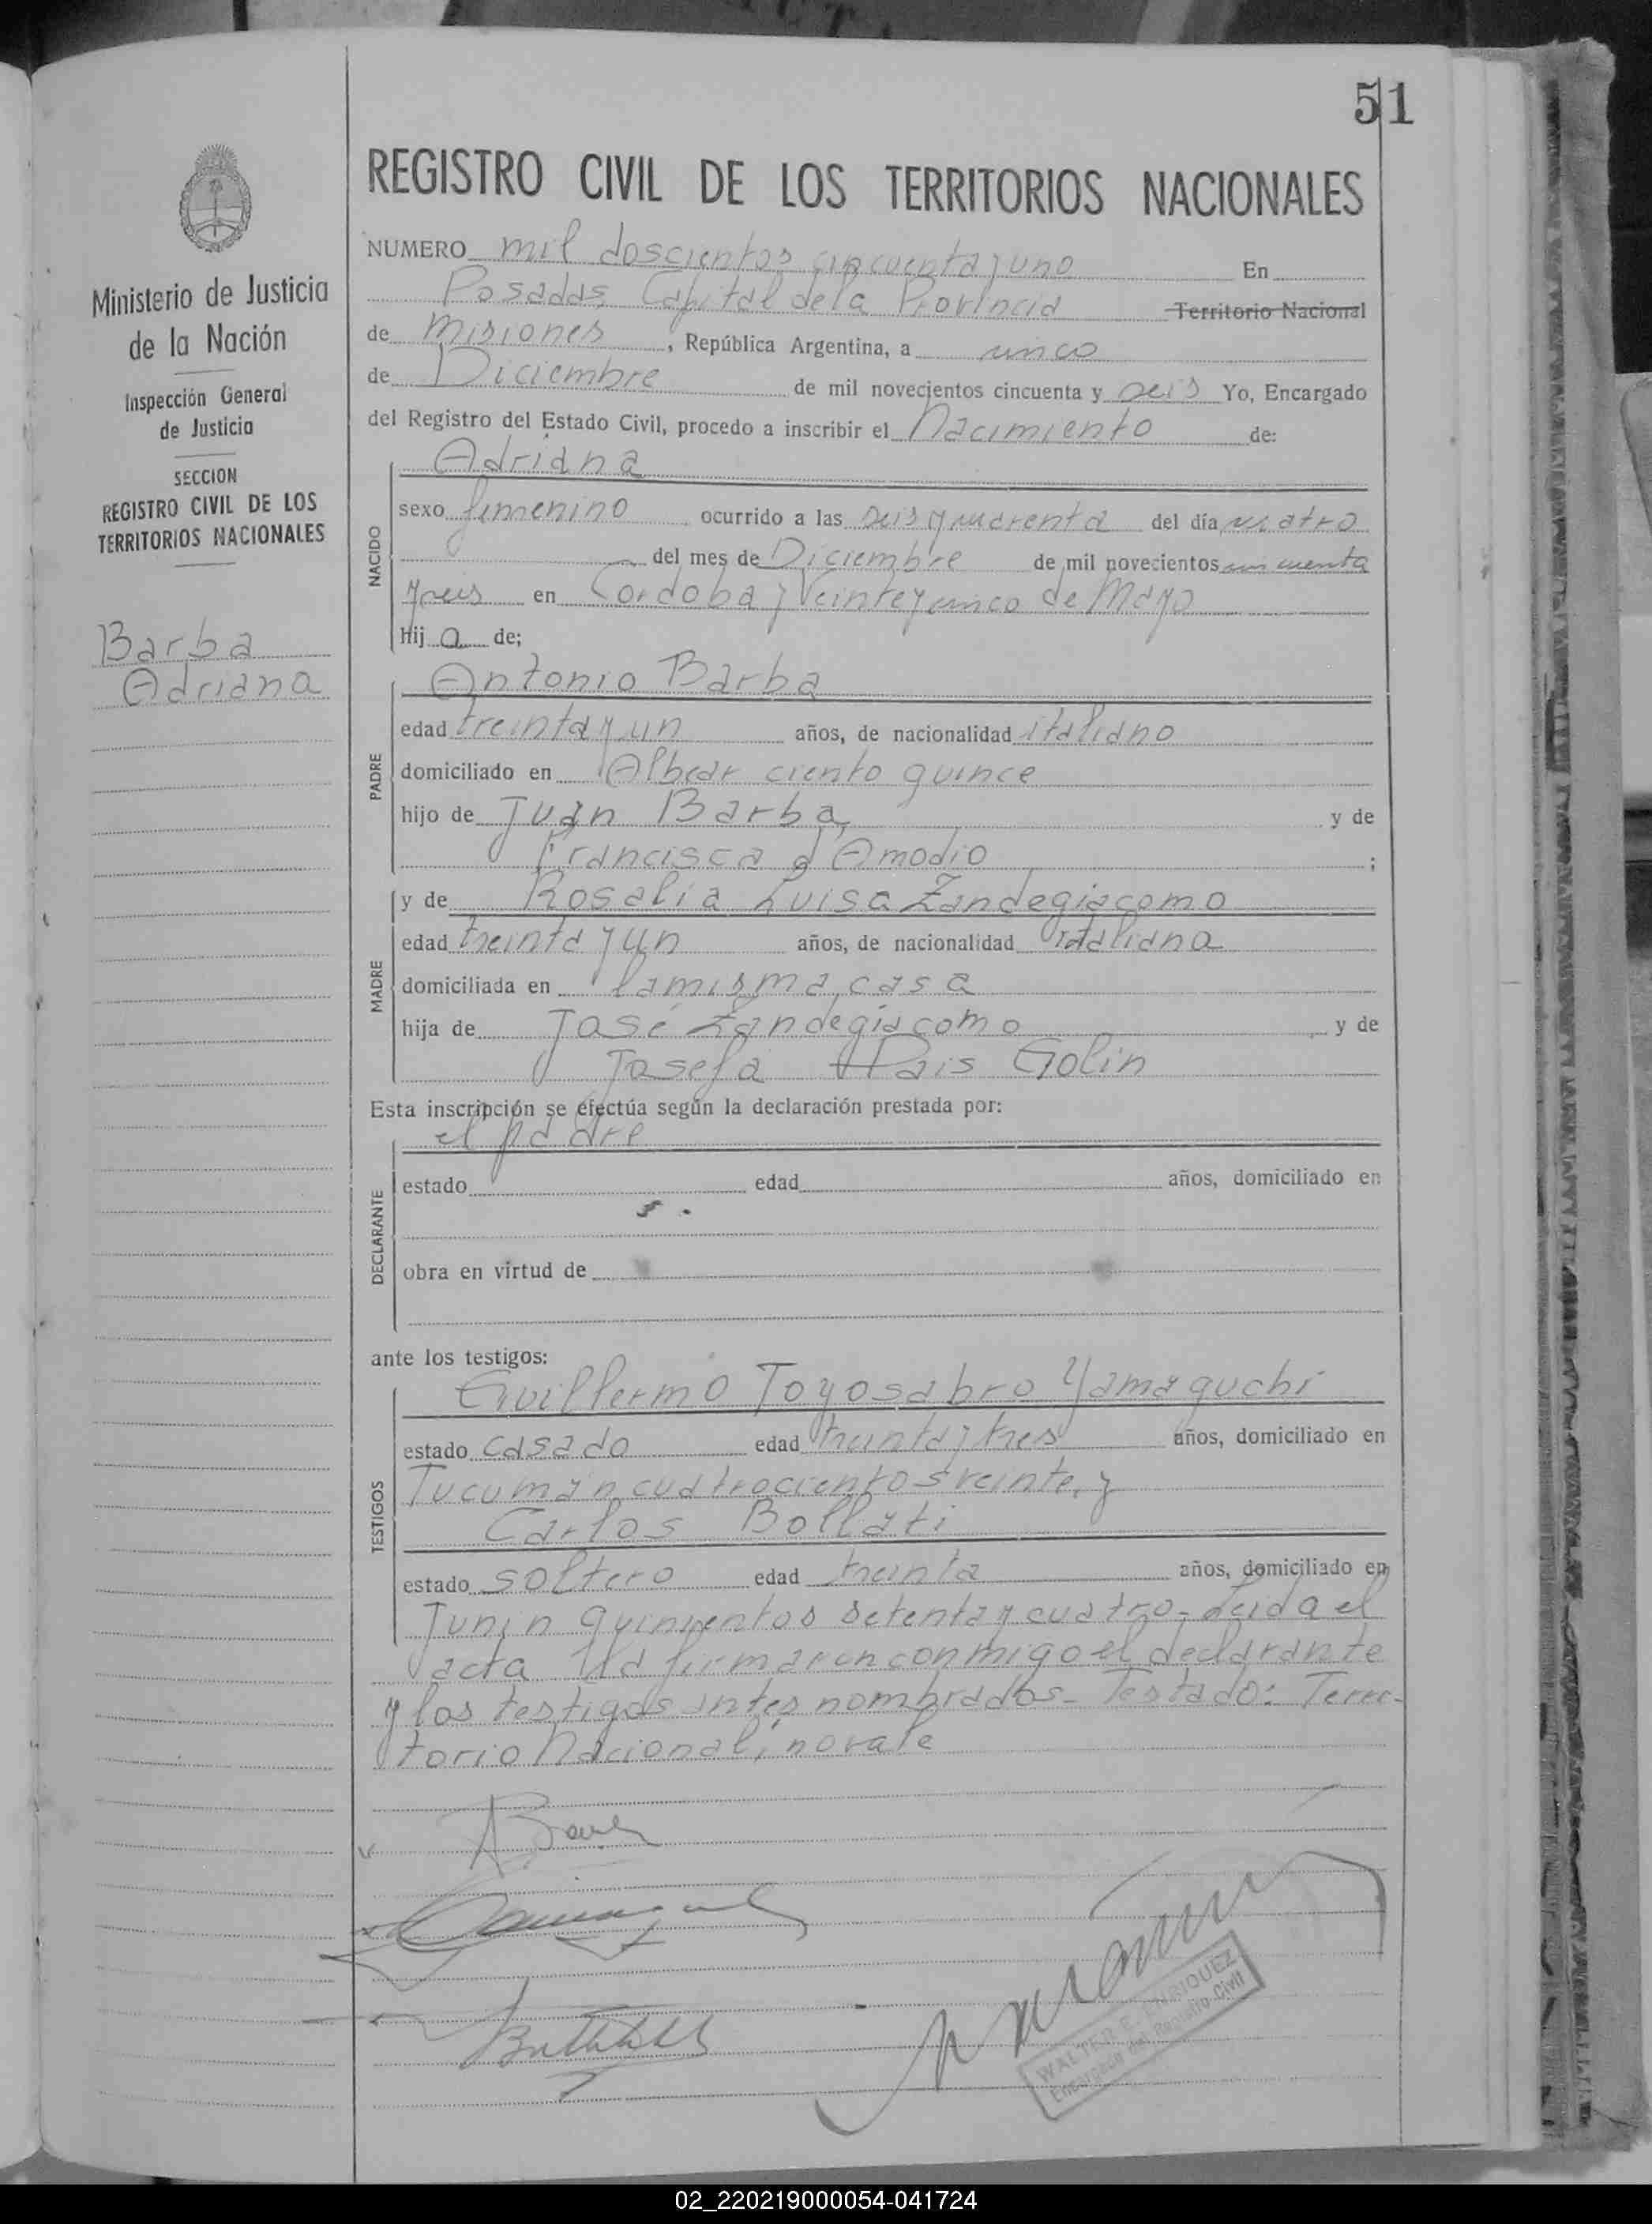 51
REGISTRO CIVIL DE LOS TERRITORIOS NACIONALES
Ministerio de Justicia
de la Nación
Inspección General
de Justicia
SECCION
REGISTRO CIVIL DE LOS
TERRITORIOS NACIONALES
Barba
Adriana
NUMERO mil doscientos cincuenta y uno En
Posadas, Capital de la Provincia Territorio Nacional
de Misiones, República Argentina, a cinco
de Diciembre de mil novecientos cincuenta y seis Yo, Encargado
del Registro del Estado Civil, procedo a inscribir el Nacimiento de:
NACIDO
Adriana
sexo femenino ocurrido a las seis y cuarenta del día cuatro
del mes de Diciembre de mil novecientos cincuenta
y seis en Cordoba y Veinte y cinco de Mayo
Hij a de;
PADRE
Antonio Barba
edad treinta y un años, de nacionalidad italiano
domiciliado en Albear ciento quince
hijo de Juan Barba, y de
Francisca d'Amodio ;
MADRE
y de Rosalia Luisa Zandegiacomo
edad treinta y un años, de nacionalidad italiana
domiciliada en la misma casa
hija de José Zandegiacomo y de
Josefa Pais Golin
Esta inscripción se efectúa según la declaración prestada por:
DECLARANTE
el padre
estado edad años, domiciliado en
obra en virtud de
ante los testigos:
TESTIGOS
Guillermo Toyosabro Yamaguchi
estado casado edad treinta y tres años, domiciliado en
Tucumán cuatrocientos veinte, y
Carlos Bollati
estado soltero edad treinta años, domiciliado en
Junin quinientos setenta y cuatro - Leida el
acta la firmaron conmigo el declarante
y los testigos antes nombrados - Testado: Terri-
torio Nacional, no vale
WALTER E.
Encargado del Registro Civil
02_220219000054-041724